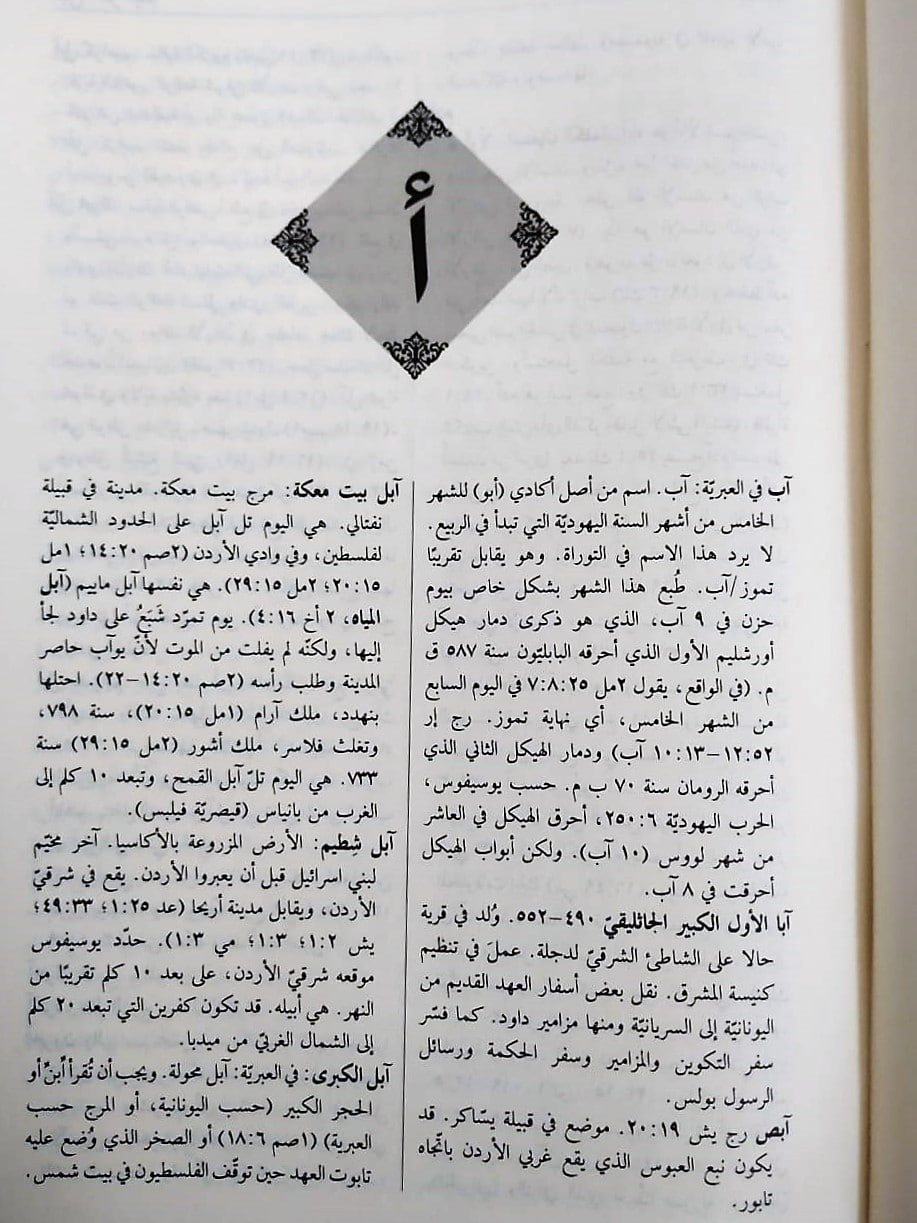 أ
آب في العبريّة: آب. اسم من أصل أكادي (أبو) للشهر
الخامس من أشهر السنة اليهوديّة التي تبدأ في الربيع.
لا يرد هذا الاسم في التوراة. وهو يقابل تقريبًا
تموز/آب. طُبع هذا الشهر بشكل خاص بيوم
حزن في ٩ آب، الذي هو ذكرى دمار هيكل
أورشليم الأول الذي أحرقه البابليّون سنة ٥٨٧ ق
م. (في الواقع، يقول ٢مل ٧:٨:٢٥ في اليوم السابع
من الشهر الخامس، أي نهاية تموز. رج إر
١٢:٥٢–١٠:١٣ آب) ودمار الهيكل الثاني الذي
أحرقه الرومان سنة ٧٠ ب م. حسب يوسيفوس،
الحرب اليهوديّة ٢٥٠:٦، أحرق الهيكل في العاشر
من شهر لووس (١٠ آب). ولكن أبواب الهيكل
أحرقت في ٨ آب.
آبا الأول الكبير الجاثليقيّ ٤٩٠–٥٥٢. وُلد في قرية
حالا على الشاطئ الشرقيّ لدجلة. عملَ في تنظيم
كنيسة المشرق. نقل بعض أسفار العهد القديم من
اليونانيّة إلى السريانيّة ومنها مزامير داود. كما فسّر
سفر التكوين والمزامير وسفر الحكمة ورسائل
الرسول بولس.
آبص رج يش ٢٠:١٩. موضع في قبيلة يسّاكر. قد
يكون نبع العبوس الذي يقع غربي الأردن باتّجاه
تابور.
آبل بيت معكة: مرج بيت معكة. مدينة في قبيلة
نفتالي. هي اليوم تل آبل على الحدود الشماليّة
لفلسطين، وفي وادي الأردن (٢صم ١٤:٢٠؛ ١مل
٢٠:١٥؛ ٢مل ٢٩:١٥). هي نفسها آبل ماييم (آبل
المياه، ٢ أخ ٤:١٦). يوم تمرّد شَبَعُ على داود لجأ
إليها، ولكنّه لم يفلت من الموت لأنّ يوآب حاصر
المدينة وطلب رأسه (٢صم ١٤:٢٠–٢٢). احتلها
بنهدد، ملك آرام (١مل ٢٠:١٥)، سنة ٧٩٨،
وتغلث فلاسر، ملك أشور (٢مل ٢٩:١٥) سنة
٧٣٣. هي اليوم تلّ آبل القمح، وتبعد ١٠ كلم إلى
الغرب من بانياس (قيصريّة فيلبس).
آبل شِطيم: الأرض المزروعة بالأكاسيا. آخر مخيّم
لبني اسرائيل قبل أن يعبروا الأردن. يقع في شرقيّ
الأردن، ويقابل مدينة أريحا (عد ١:٢٥؛ ٤٩:٣٣؛
يش ١:٢؛ ١:٣؛ مي ١:٣). حدّد يوسيفوس
موقعه شرقيّ الأردن، على بعد ١٠ كلم تقريبًا من
النهر. هي أبيله. قد تكون كفرين التي تبعد ٢٠ كلم
إلى الشمال الغربيّ من ميدبا.
آبل الكبرى: في العبريّة: آبل محولة. ويجب أن تُقرأ أبنْ أو
الحجر الكبير (حسب اليونانية، أو المرج حسب
العبرية) (١صم ١٨:٦) أو الصخر الذي وُضع عليه
تابوت العهد حين توقّف الفلسطيون في بيت شمس.